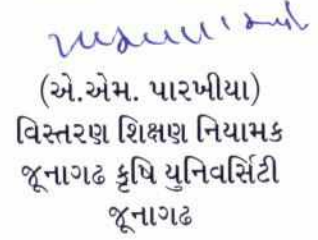 (એ.એમ. પારખીયા)
વિસ્તરણ શિક્ષણ નિયામક
જૂનાગઢ કૃષિ યુનિવર્સિટી
જૂનાગઢ